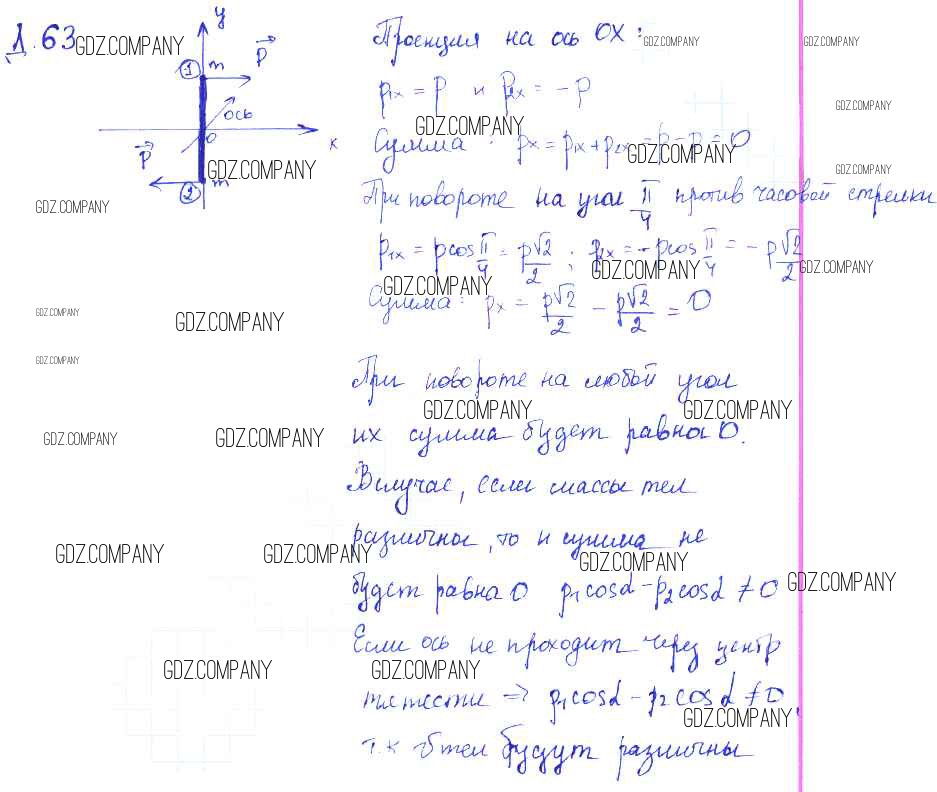 1.63 GDZ.COMPANY
y
1 m p
ось
0 x
p
2 m
GDZ.COMPANY
GDZ.COMPANY
Проекция на ось OX: GDZ.COMPANY GDZ.COMPANY
p₁ₓ = p и p₂ₓ = -p
GDZ.COMPANY GDZ.COMPANY
Сумма: pₓ = p₁ₓ + p₂ₓ = p - p = 0
GDZ.COMPANY GDZ.COMPANY
При повороте на угол π/4 против часовой стрелки
p₁ₓ = p cos π/4 = p√2/2 ; p₂ₓ = -p cos π/4 = -p√2/2
GDZ.COMPANY GDZ.COMPANY GDZ.COMPANY
Сумма: pₓ = p√2/2 - p√2/2 = 0
GDZ.COMPANY GDZ.COMPANY
GDZ.COMPANY
При повороте на любой угол
GDZ.COMPANY GDZ.COMPANY
GDZ.COMPANY GDZ.COMPANY
их сумма будет равна 0.
В случае, если массы тел
различны, то и сумма не
GDZ.COMPANY GDZ.COMPANY GDZ.COMPANY
будет равна 0 p₁cosα - p₂cosα ≠ 0 GDZ.COMPANY
Если ось не проходит через центр
GDZ.COMPANY GDZ.COMPANY
тяжести => p₁cosα - p₂cosα ≠ 0,
GDZ.COMPANY
т.к тел будут различны